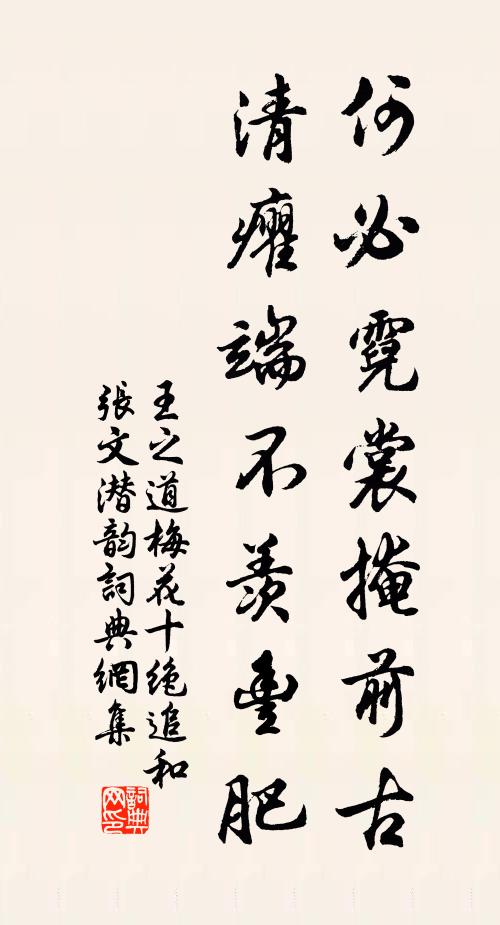 何必霓裳掩前古
清癯端不羨豐肥
王之道梅花十絶追和
張文潜韵詞典網集
詞典网印